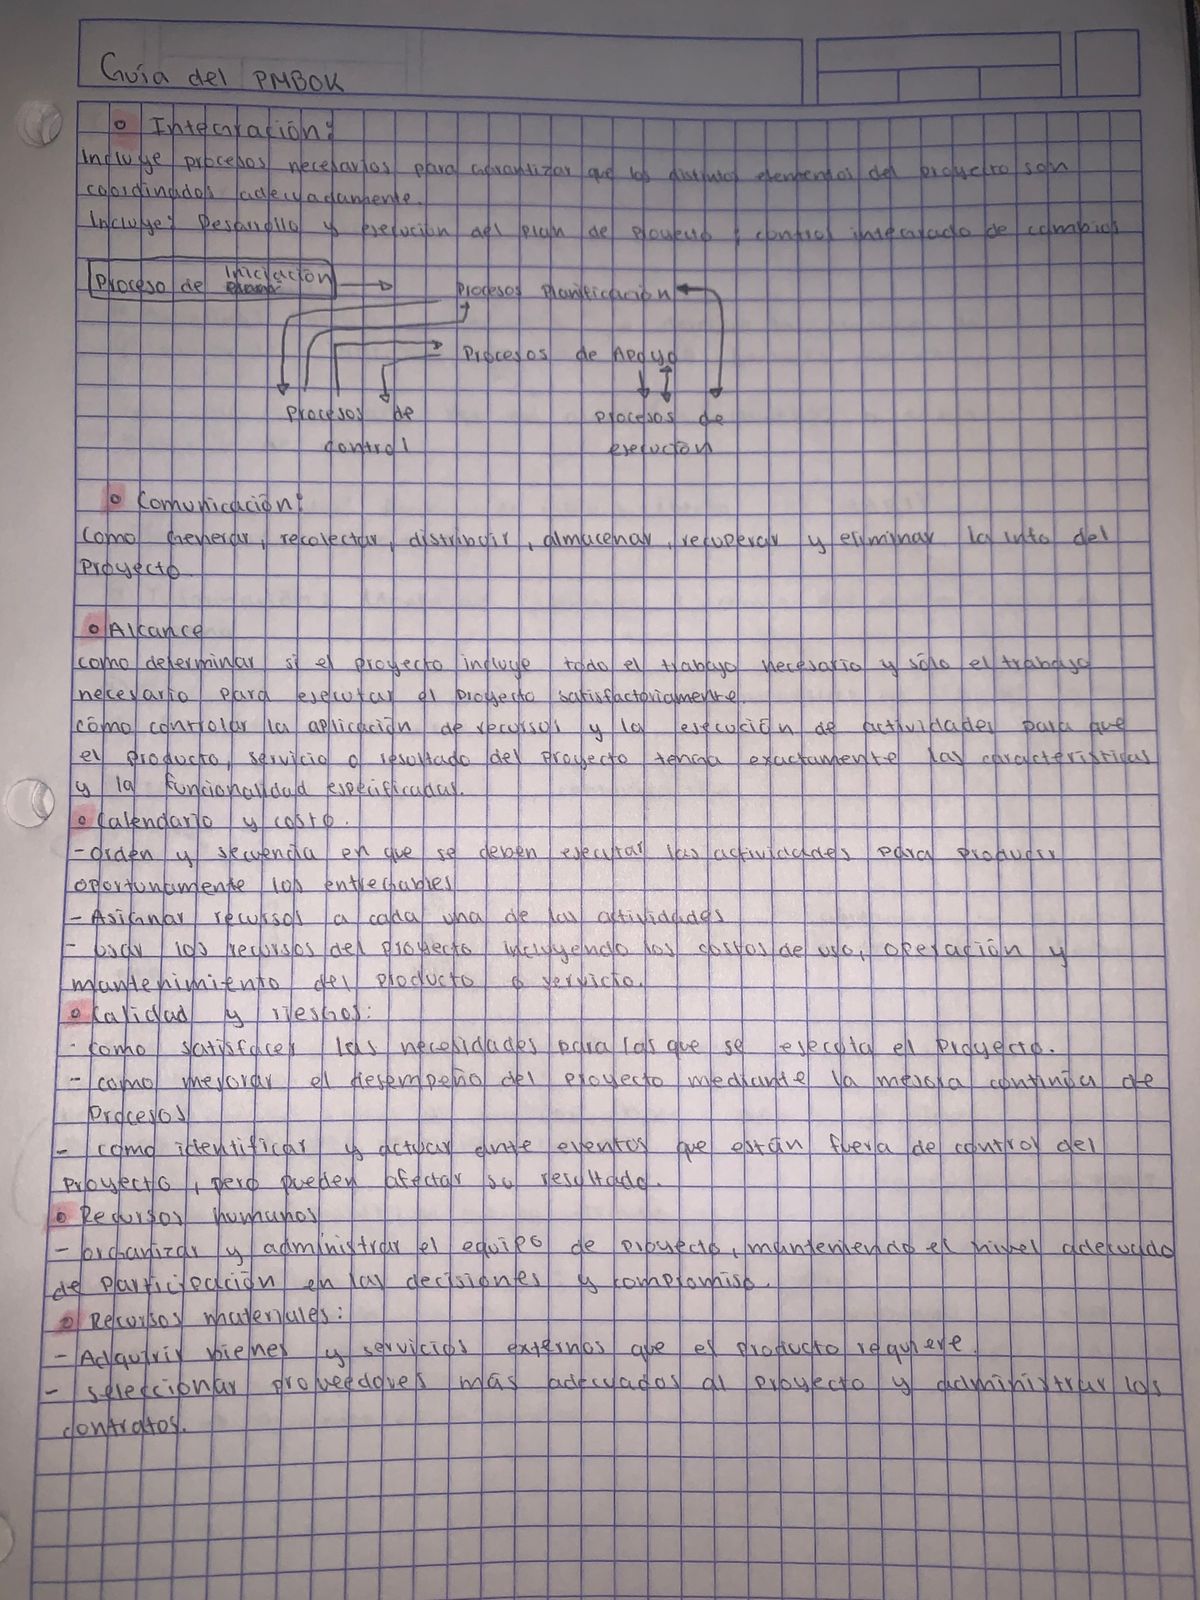 Guía del PMBOK
Integración:
Incluye procesos necesarios para garantizar que los distintos elementos del proyecto son
coordinados adecuadamente.
Incluye: Desarrollo y ejecución del plan de proyecto, control integrado de cambios
Proceso de Iniciación
Procesos Planificación
Procesos de Apoyo
Procesos de
control
Procesos de
ejecución
Comunicación:
Como Generar, recolectar, distribuir, almacenar, recuperar y eliminar la info del
Proyecto
Alcance
como determinar si el proyecto incluye todo el trabajo necesario y sólo el trabajo
necesario para ejecutar el proyecto satisfactoriamente.
cómo controlar la aplicación de recursos y la ejecución de actividades para que
el producto, servicio o resultado del proyecto tenga exactamente las características
y la funcionalidad especificadas.
Calendario y costo.
-orden y secuencia en que se deben ejecutar las actividades para producir
oportunamente los entregables
- Asignar recursos a cada una de las actividades
- usar los recursos del proyecto incluyendo los costos de uso, operación y
mantenimiento del producto o servicio.
Calidad y riesgos:
- como satisfacer las necesidades para las que se ejecuta el Proyecto.
- como mejorar el desempeño del proyecto mediante la mejora continua de
Procesos
- como identificar y actuar ante eventos que están fuera de control del
Proyecto, pero pueden afectar su resultado.
Recursos humanos
- organizar y administrar el equipo de proyecto, manteniendo el nivel adecuado
de participación en las decisiones y compromiso.
Recursos materiales:
- Adquirir bienes y servicios externos que el producto requiere.
- seleccionar proveedores más adecuados al proyecto y administrar los
contratos.